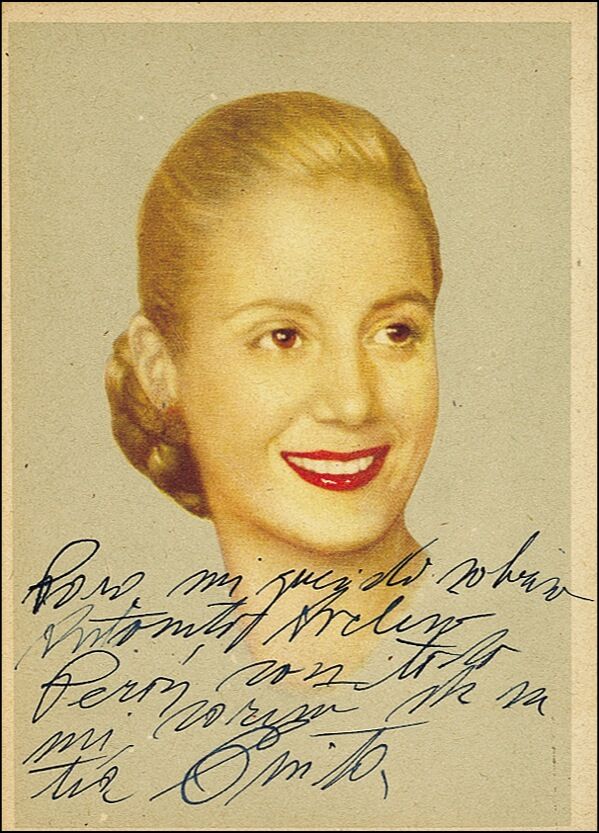 Para mi querido sobrino
Antonito Avelino
Perón, con todo
mi cariño de su
tía Evita,